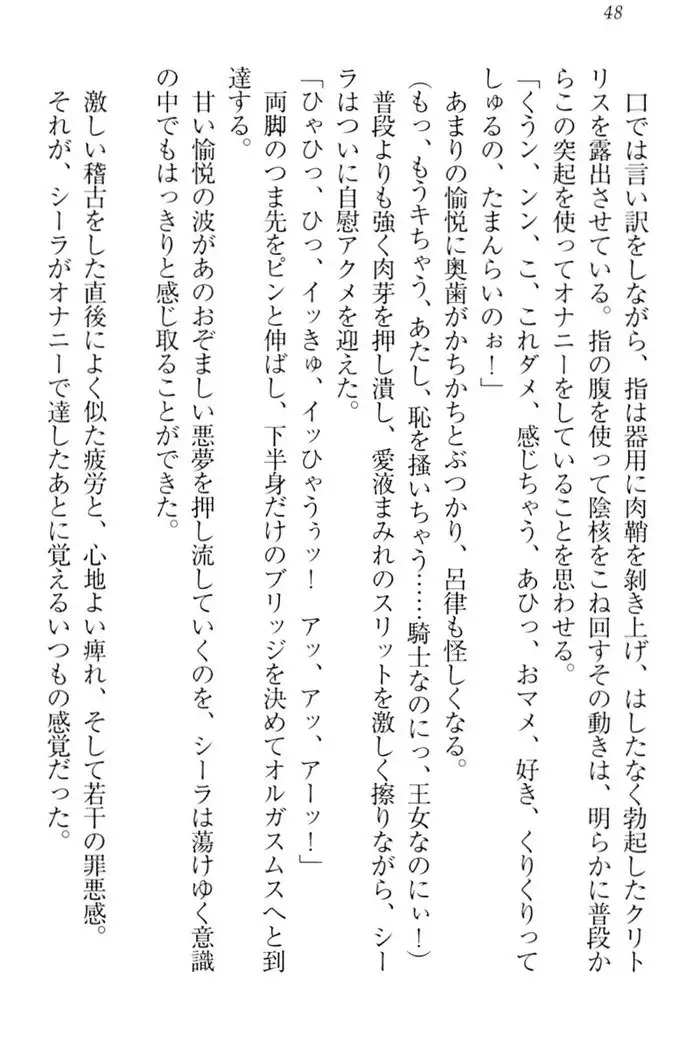 48
口では言い訳をしながら、指は器用に肉鞘を剝き上げ、はしたなく勃起したクリト
リスを露出させている。指の腹を使って陰核をこね回すその動きは、明らかに普段か
らこの突起を使ってオナニーをしていることを思わせる。
「くうン、ンン、こ、これダメ、感じちゃう、あひっ、おマメ、好き、くりくりって
しゅるの、たまんらいのぉ！」
あまりの愉悦に奥歯がかちかちとぶつかり、呂律も怪しくなる。
（もっ、もうキちゃう、あたし、恥を掻いちゃう……騎士なのにっ、王女なのにぃ！）
普段よりも強く肉芽を押し潰し、愛液まみれのスリットを激しく擦りながら、シー
ラはついに自慰アクメを迎えた。
「ひゃひっ、ひっ、イッきゅ、イッひゃうぅッ！　アッ、アッ、アーッ！」
両脚のつま先をピンと伸ばし、下半身だけのブリッジを決めてオルガスムスへと到
達する。
甘い愉悦の波があのおぞましい悪夢を押し流していくのを、シーラは蕩けゆく意識
の中でもはっきりと感じ取ることができた。
激しい稽古をした直後によく似た疲労と、心地よい痺れ、そして若干の罪悪感。
それが、シーラがオナニーで達したあとに覚えるいつもの感覚だった。